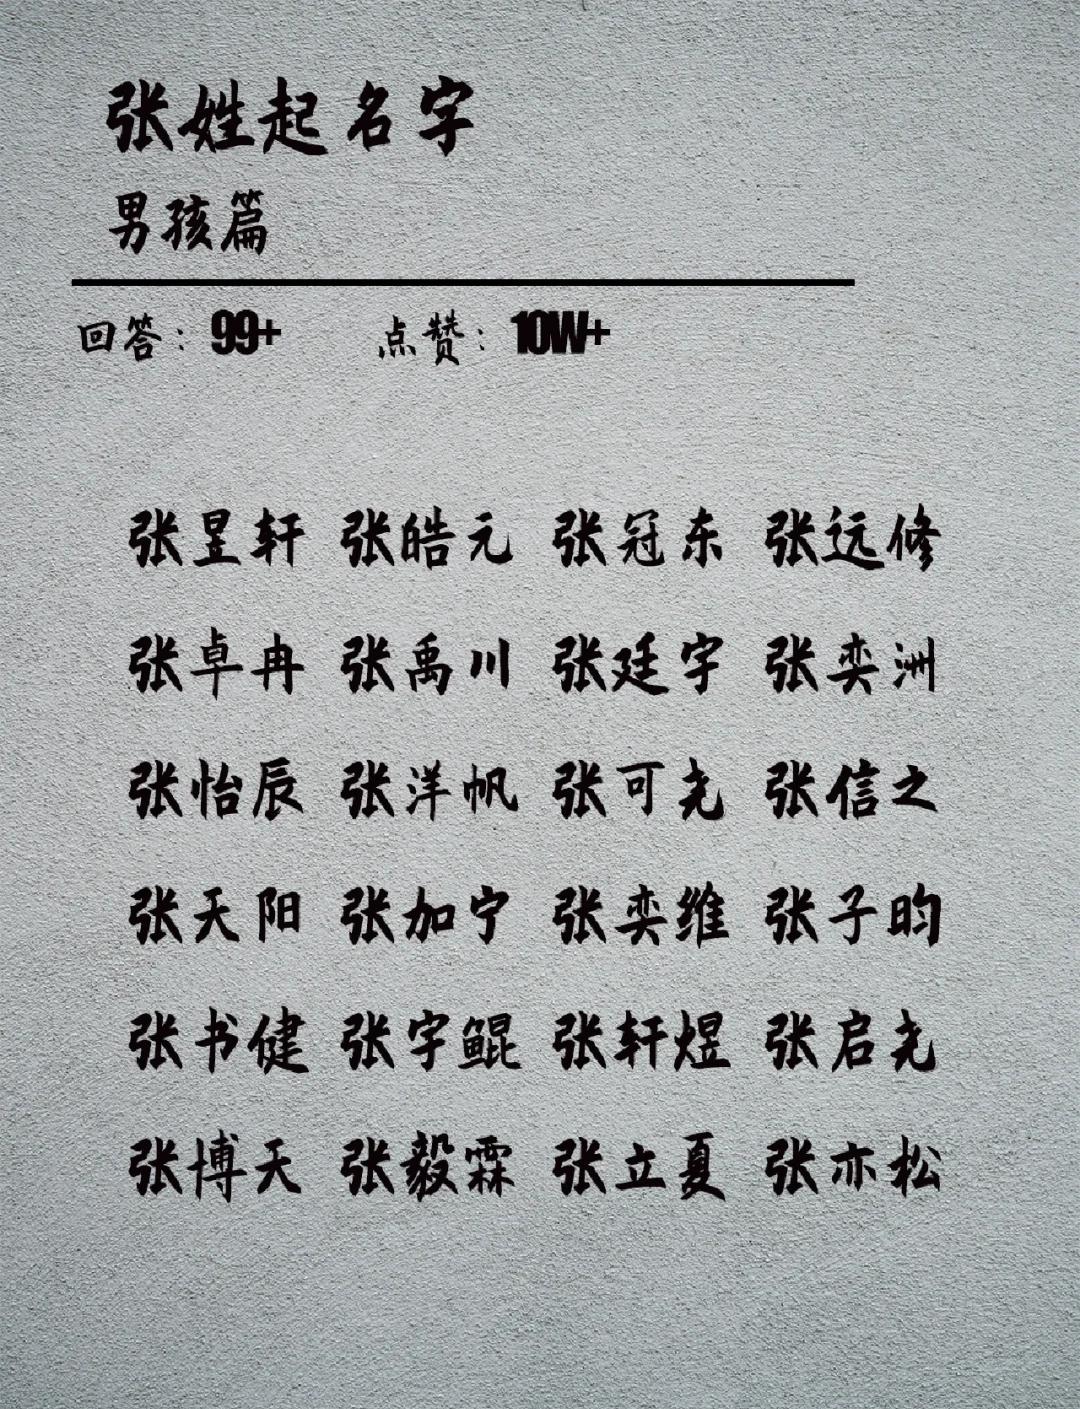 张姓起名字
男孩篇
回答：99+ 点赞：10W+
张昱轩 张皓元 张冠东 张远修
张卓冉 张禹川 张廷宇 张奕洲
张怡辰 张洋帆 张可尧 张信之
张天阳 张加宁 张奕维 张子昀
张书健 张宇鲲 张轩煜 张启尧
张博天 张毅霖 张立夏 张亦松